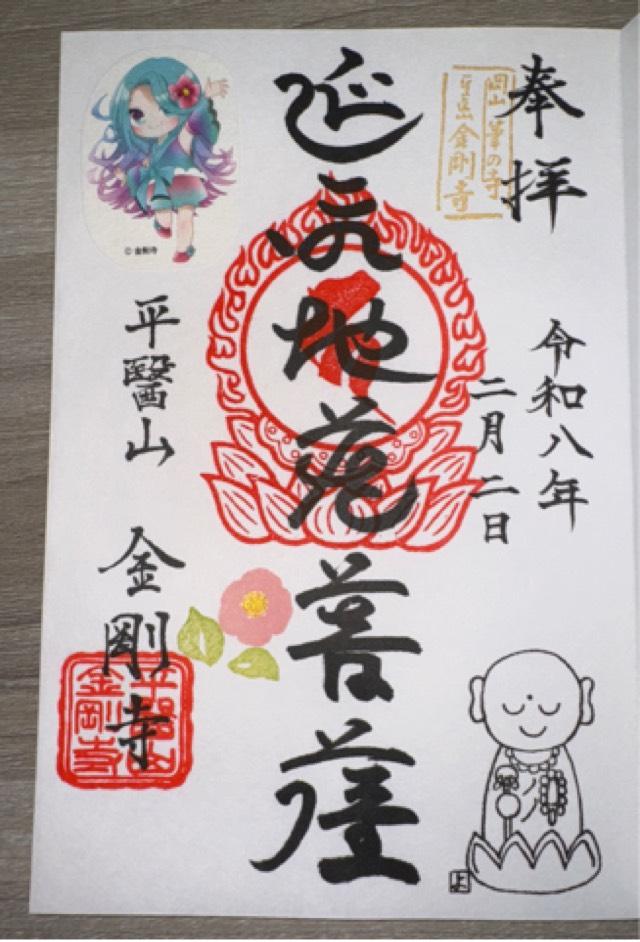 奉拝
岡山
の寺
金剛寺
令和八年
二月二日
延命地蔵菩薩
平醫山 金剛寺
平醫山
金剛寺
© 金剛寺
よ